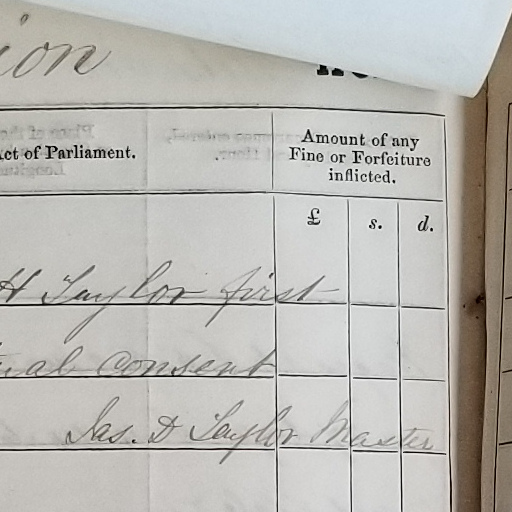 ion
Act of Parliament.
Amount of any
Fine or Forfeiture
inflicted.
£ s. d.
H Taylor first
consent
Jas. D Taylor Master